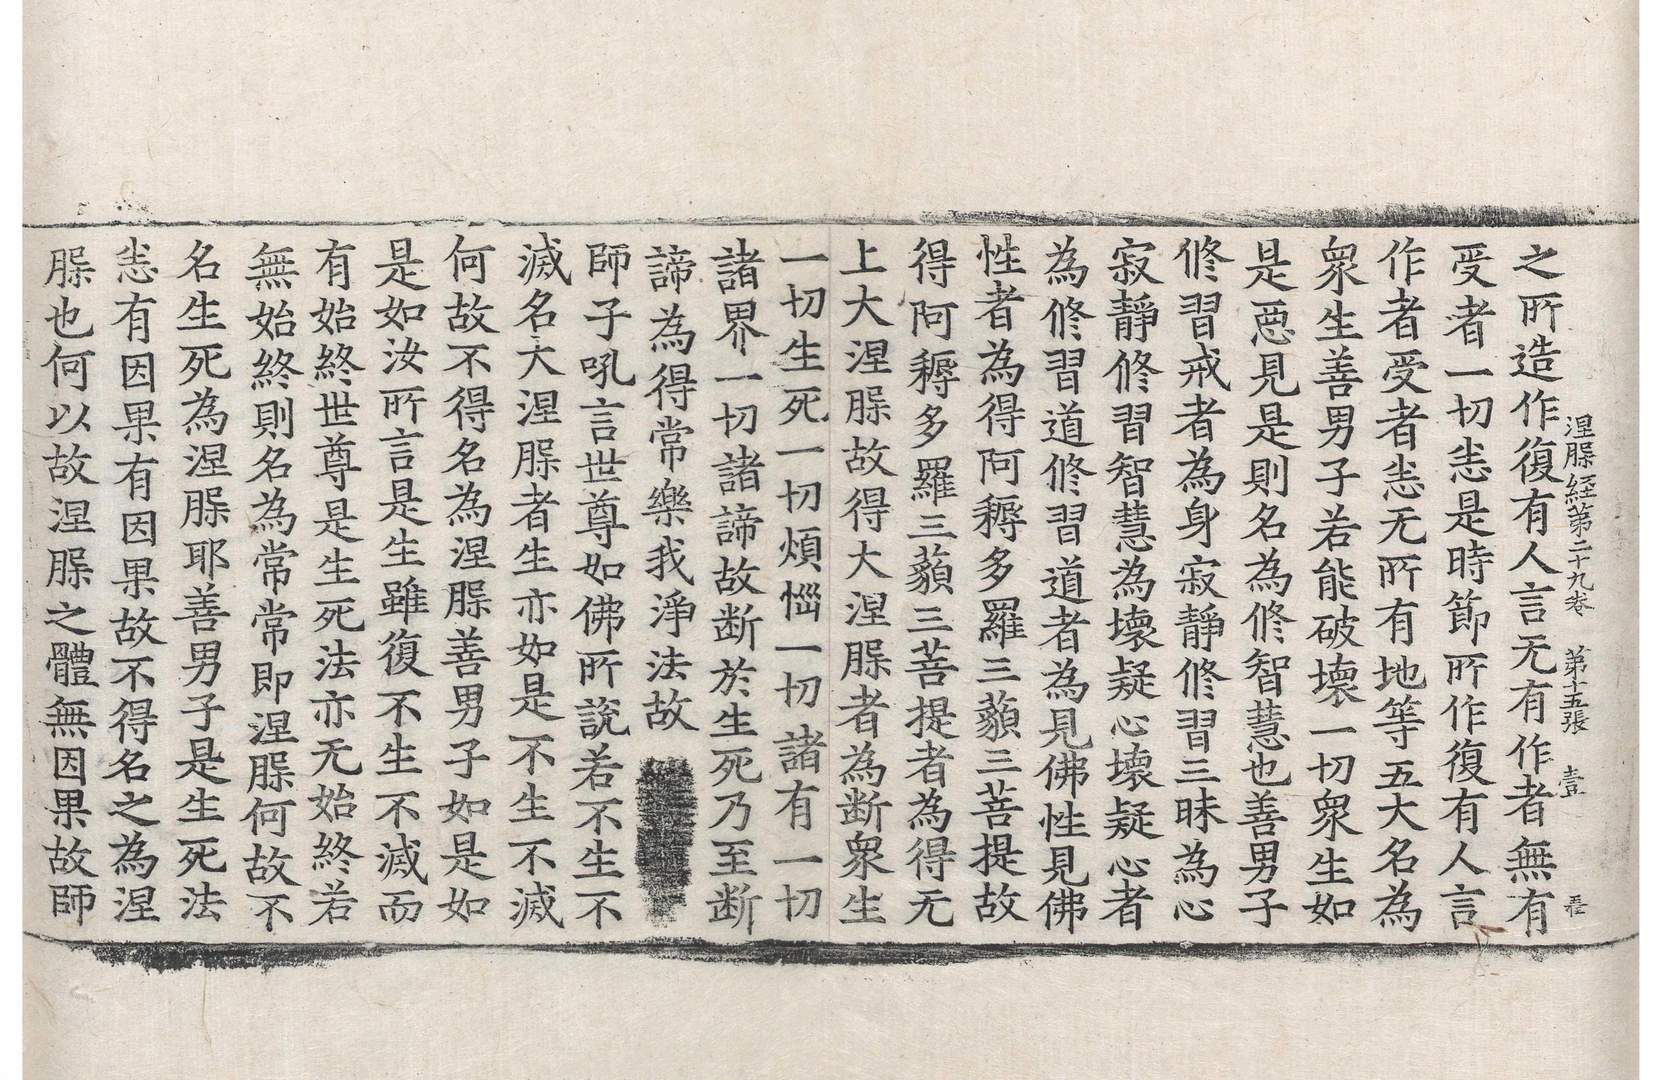 涅槃経第二十九卷　第十五張　壹
之所造作復有人言无有作者無有
受者一切恙是時節所作復有人言
作者受者恙无所有地等五大名為
衆生善男子若能破壞一切衆生如
是惡見是則名為修智慧也善男子
修習戒者為身寂靜修習三昧為心
寂靜修習智慧為壞疑心壞疑心者
為修習道修習道者為見佛性見佛
性者為得阿耨多羅三藐三菩提故
得阿耨多羅三藐三菩提者為得无
上大涅槃故得大涅槃者為断衆生
一切生死一切煩惱一切諸有一切
諸界一切諸諦故断於生死乃至断
諦為得常樂我淨法故
師子吼言世尊如佛所說若不生不
滅名大涅槃者生亦如是不生不滅
何故不得名為涅槃善男子如是如
是如汝所言是生雖復不生不滅而
有始終世尊是生死法亦无始終若
無始終則名為常常即涅槃何故不
名生死為涅槃耶善男子是生死法
恙有因果有因果故不得名之為涅
槃也何以故涅槃之體無因果故師